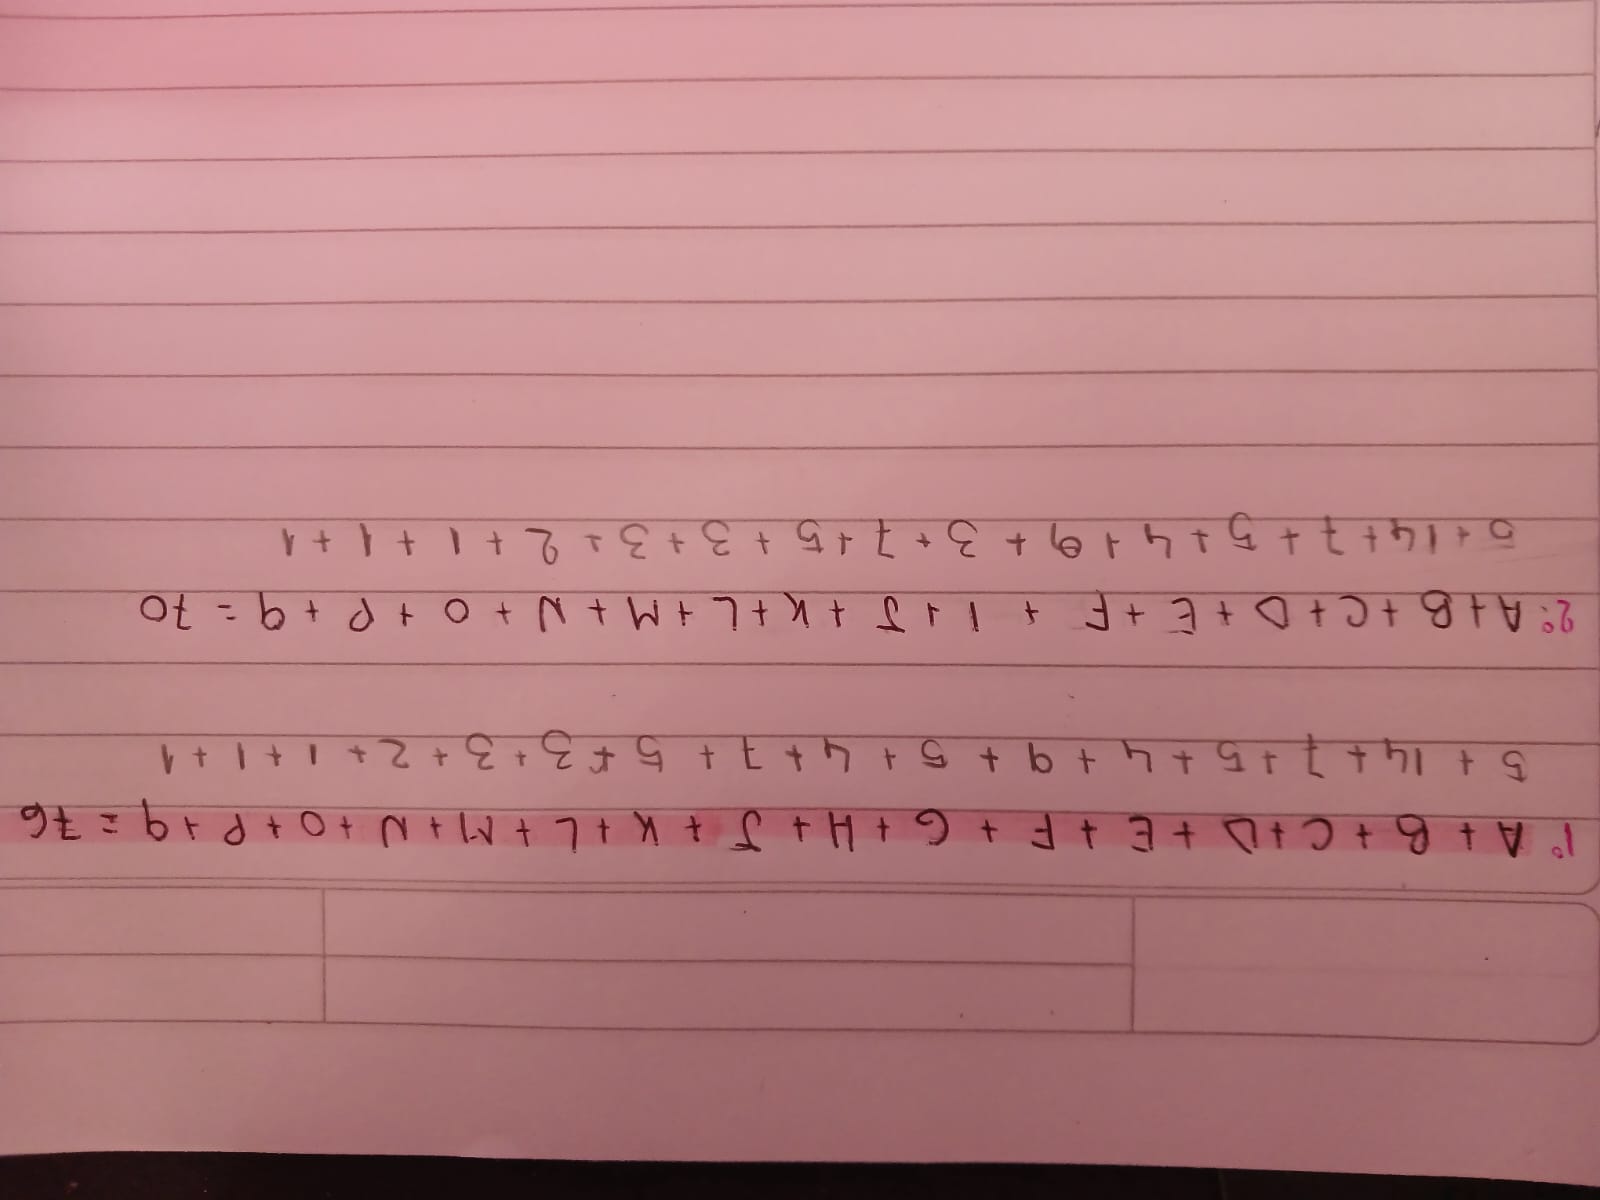 1º A + B + C + D + E + F + G + H + J + K + L + M + N + O + P + q = 76
5 + 14 + 7 + 5 + 4 + 9 + 5 + 4 + 7 + 5 + 3 + 3 + 2 + 1 + 1 + 1
2º: A + B + C + D + E + F + I + J + K + L + M + N + O + P + q = 70
5 + 14 + 7 + 5 + 4 + 9 + 3 + 7 + 5 + 3 + 3 + 2 + 1 + 1 + 1